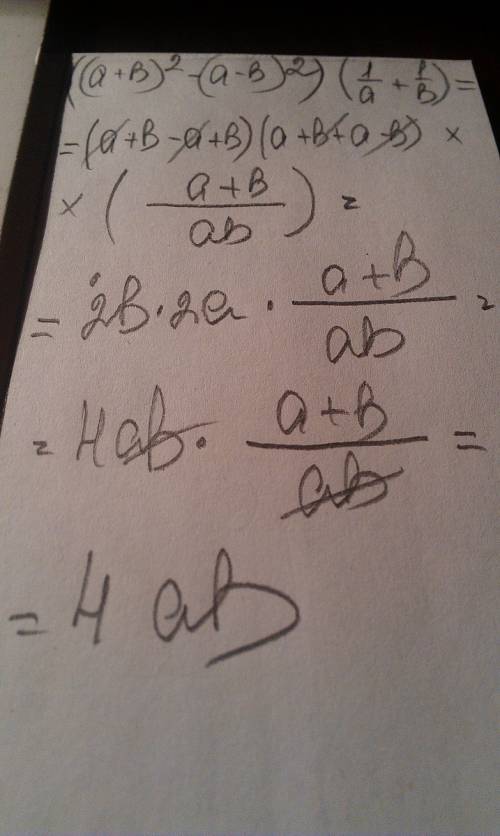 ((a+B)²-(a-B)²)(1/a+1/B)=
=(a+B-a+B)(a+B+a-B) ×
×(a+B/ab)=
=2B·2a·a+B/ab=
=4ab·a+B/ab=
=4ab